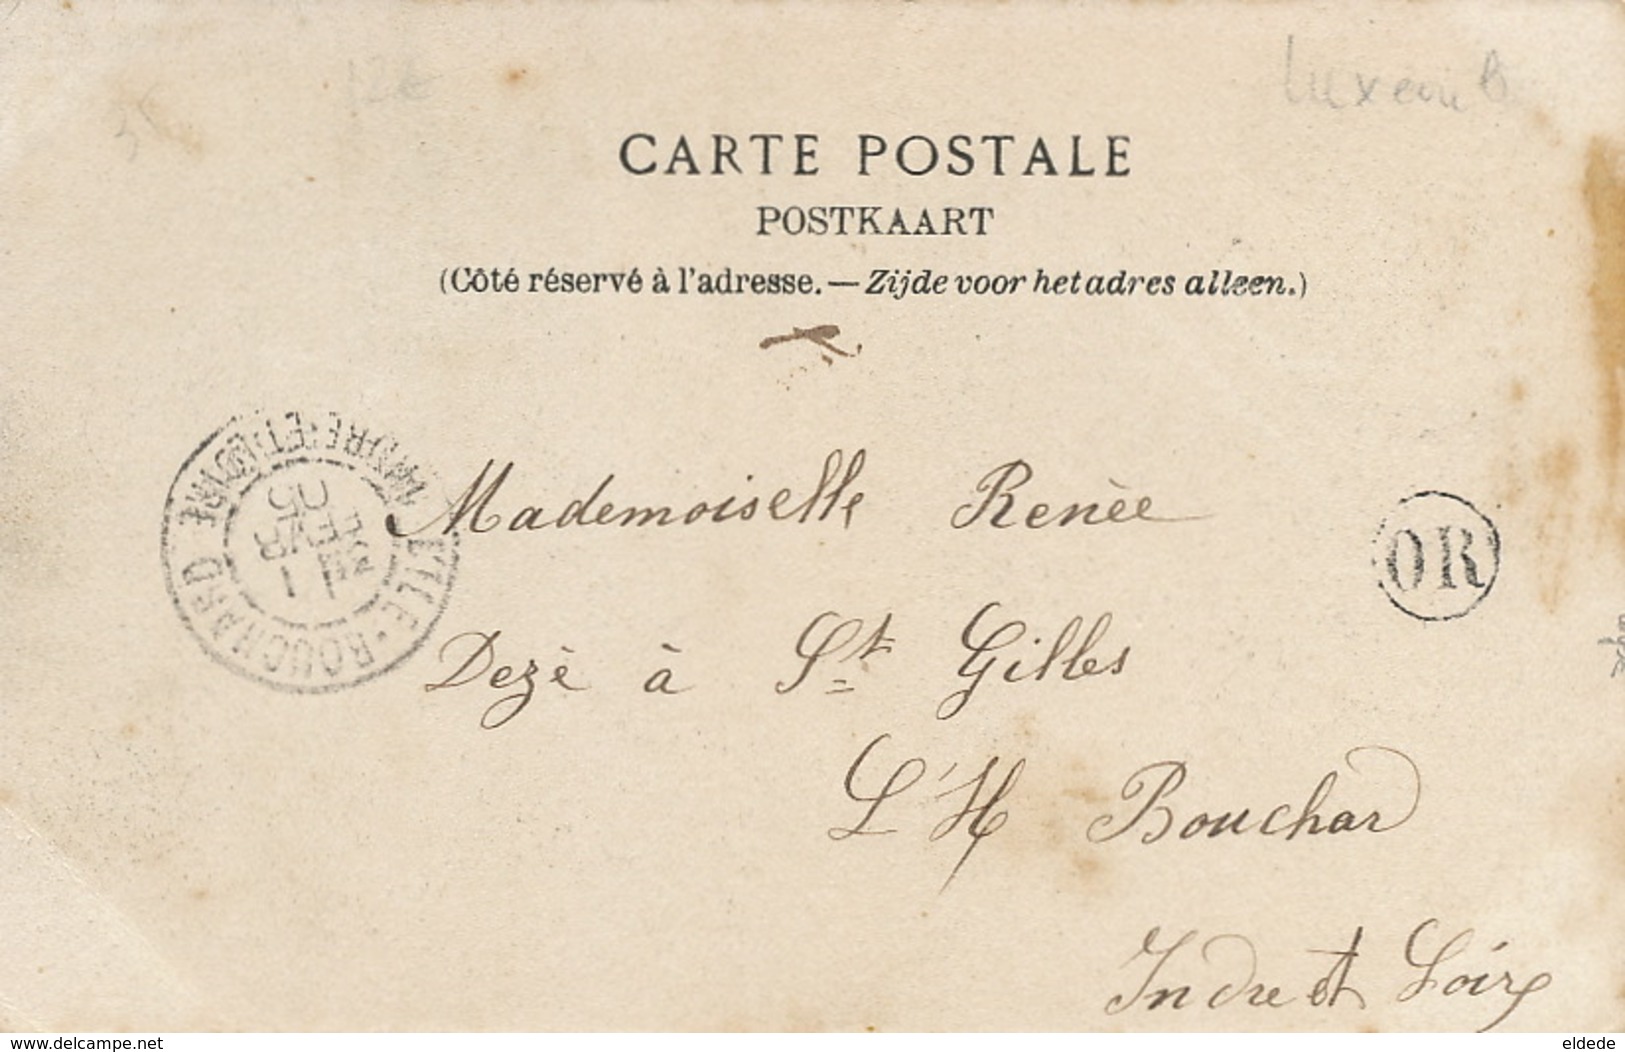 12€
Luxeuil B
CARTE POSTALE
POSTKAART
(Côté réservé à l'adresse.—Zijde voor het adres alleen.)
Mademoiselle Renèe
Dezè à St Gilles
L'H Bouchard
Indre et Loire
OR
L'ILE-BOUCHARD
INDRE-ET-LOIRE
FEVR
05
delcampe.net
eldede